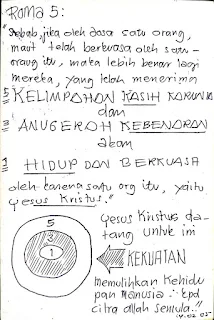 Roma 5:
"Sebab, jika oleh dosa satu orang,
maut telah berkuasa oleh satu
orang itu, maka lebih benar lagi
mereka, yang telah menerima
5 KELIMPAHAN KASIH KARUNIA
dan
ANUGERAH KEBENARAN
akan
1 HIDUP DAN BERKUASA
oleh karena satu org itu, yaitu
Yesus Kristus."
Yesus Kristus da-
tang untuk ini
5
3
1
KEKUATAN
memulihkan Kehidu
pan Manusia : kpd
citra Allah semula."